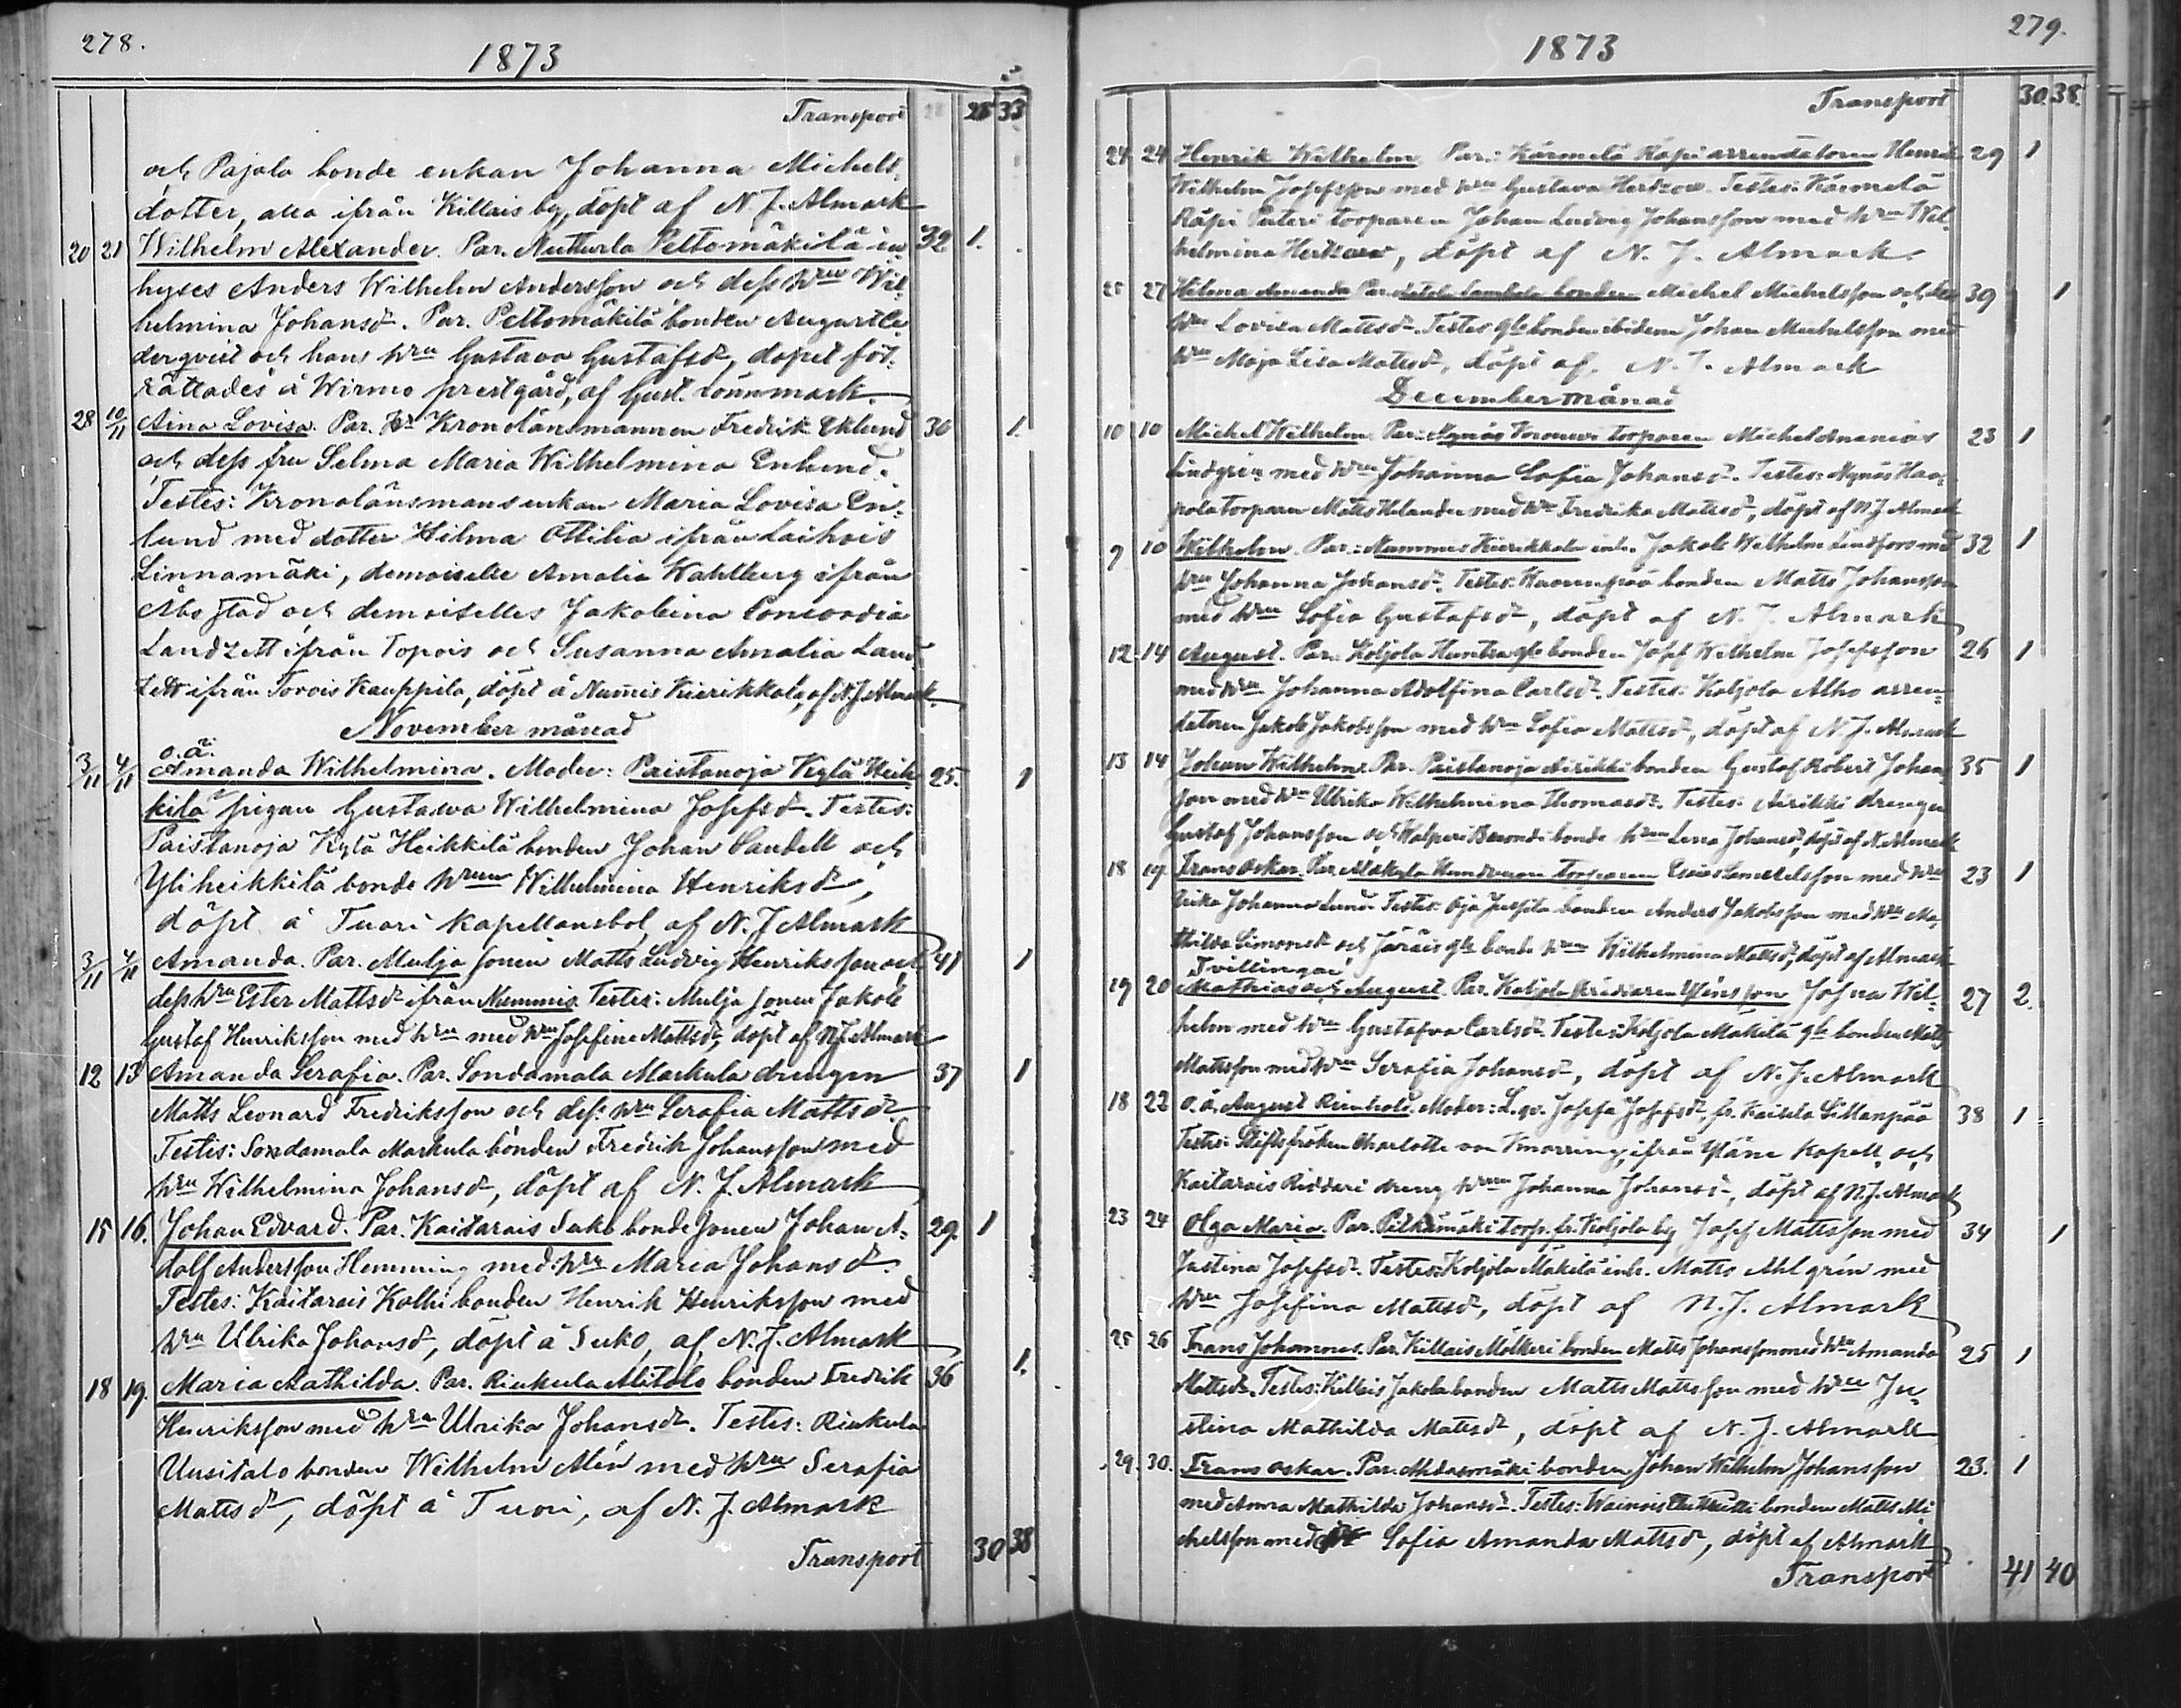 278.
1873
Transport 28 33
och Pajala bonde enkan Johanna Michels
dotter, alla ifrån Killais by, döpt af N. J. Almark
20 21 Wilhelm Alexander. Par. Nutturla Peltomäkilä in- 32 1.
hyses Anders Wilhelm Andersson och dess hru Wil-
helmina Johansd. Par. Peltomäkilä bonden August Ce-
derqvist och hans hru Gustava Gustafsd, dopet för-
rättades å Wirmo prestgård, af Gust. Lönnmark.
28 10/11 Aina Lovisa. Par. Hr Kronolänsmannen Fredrik Eklund 30 1.
och dess fru Selma Maria Wilhelmina Enlund.
Testes: Kronolänsmansenkan Maria Lovisa En-
lund med dotter Hilma Ottilia ifrån Laihois
Linnamäki, demoiselle Amalia Wahlberg ifrån
Åbo stad och demoiselles Jakobina Concordia
Landzett ifrån Topois och Susanna Amalia Land-
zett ifrån Torois Kauppila, döpt å Numis Kierikkala, af N. J. Almark.
November månad
o. ä.
3/11 4/11 Amanda Wilhelmina. Moder: Paistanoja Kylä Heik- 25. 1
kilä pigan Gustawa Wilhelmina Josefsd. Testes:
Paistanoja Kylä Heikkilä bonden Johan Sandell och
Yliheikkilä bonde hrun Wilhelmina Henriksd,
döpt å Tuori kapellansbol af N. J. Almark
3/11 4/11 Amanda. Par. Mulja sonen Matts Ludvig Henriksson och 41 1
dess hru Ester Mattsd ifrån Nummis. Testes: Mulja sonen Jakob
Gustaf Henriksson med hru med hru Josefina Mattsd, döpt af N. J. Almark
12 13 Amanda Serafia. Par. Sondamala Markula drengen 37 1
Matts Leonard Fredriksson och dess hru Serafia Mattsd.
Testes: Sondamala Markula bonden Fredrik Johansson med
hru Wilhelmina Johansd, döpt af N. J. Almark
15 16. Johan Edvard. Par. Kaitarais Suko bonde sonen Johan A- 29. 1
dolf Andersson Hemming med hru Maria Johansd.
Testes: Kaitarais Kolhi bonden Henrik Henriksson med
hru Ulrika Johansd, döpt å Suko, af N. J. Almark
18 19. Maria Mathilda. Par. Rinkula Alitalo bonden Fredrik 36 1.
Henriksson med hru Ulrika Johansd. Testes: Rinkula
Uusitalo bonden Wilhelm Alén med hru Serafia
Mattsd, döpt å Tuori, af N. J. Almark
Transport 30 38
279.
1873
Transport 30. 38.
24 24 Henrik Wilhelm. Par.: Kärmelä Räpi arrendatoren Henrik 29 1
Wilhelm Josefsson med hru Gustava Hertzow. Testes: Kärmelä
Räpi Puteri torparen Johan Ludvig Johansson med hru Wil-
helmina Hertzow, döpt af N. J. Almark.
25 27 Hilma Amanda. Par. bonden Michel Michelsson och dess 39 1
hru Lovisa Mattsd. Testes gle bonden ibidem Johan Michelsson med
hru Maja Lisa Mattsd, döpt af N. J. Almark
December månad
10 10 Michel Wilhelm. Par. Nynäs torparen Michel Ananias 23 1
Lindgrén med hru Johanna Sofia Johansd. Testes: Nynäs Haa-
pala torparen Matts Helander med hru Fredrika Mattsd, döpt af N. J. Almark
9 10 Wilhelm. Par.: Nummis Kierikkala inh. Jakob Wilhelm Lindfors med 32 1
hru Johanna Johansd. Testes: bonden Matts Johansson
med hru Sofia Gustafsd, döpt af N. J. Almark
12 14 August. Par. Koljola Humtsa gle bonden Josef Wilhelm Josefsson 26 1
med hru Johanna Adolfina Carlsd. Testes: Koljola Alho arren-
datoren Jakob Jakobsson med hru Sofia Mattsd, döpt af N. J. Almark
13 14 Johan Wilhelm. Par. Paistanoja Airikki bonden Gustaf Robert Johans- 35 1
son med hru Ulrika Wilhelmina Thomasd. Testes: Airikki drengen
Gustaf Johansson och Walperi bonde hrun Lena Johansd, döpt af N. Almark
18 19. Frans Oskar. Par. Alakylä torparen Esaias Samuelsson med hru 23 1
Ulrika Johanna Lund. Testes: Oja Juspila bonden Anders Jakobsson med hru Ma-
thilda Simonsd och Järäis gle bonde hrun Wilhelmina Mattsd, döpt af Almark
Tvillingar
19 20 Mathias och August. Par. Koljola skräddaren Yläneson Josua Wil- 27 2.
helm med hru Gustafva Carlsd. Testes: Koljola Mäkilä gle bonden Matts
Mattsson med hru Serafia Johansd, döpt af N. J. Almark
18 22 o. ä. August Reinhold. Moder: L. qv. Josefa Josefsd, fr. Kaisela Sillanpää 38 1
Testes: Stiftsfröken Charlotte von Knorring, ifrån Yläne Kapell, och
Kaitarais Ridderi dreng hrun Johanna Johansd, döpt af N. J. Almark
23 24 Olga Maria. Par. Pitkämäki torp. fr. Koljola by Josef Mattsson med 34 1
Justina Josefsd. Testes: Koljola Mäkilä inh. Matts Ahlgrén med
hru Josefina Mattsd, döpt af N. J. Almark
25 26 Frans Johannes. Par. Killais Mölkeri bonden Matts Johansson med hru Amanda 25 1
Mattsd. Testes: Killais Jakola bonden Matts Mattsson med hru Ju-
stina Mathilda Mattsd, döpt af N. J. Almark
29. 30. Frans Oskar. Par. Ahdasmäki bonden Johan Wilhelm Johansson 23. 1
med Anna Mathilda Johansd. Testes: Wainois bonden Matts Mi-
chelsson med Sofia Amanda Mattsd, döpt af Almark
Transport 41 40